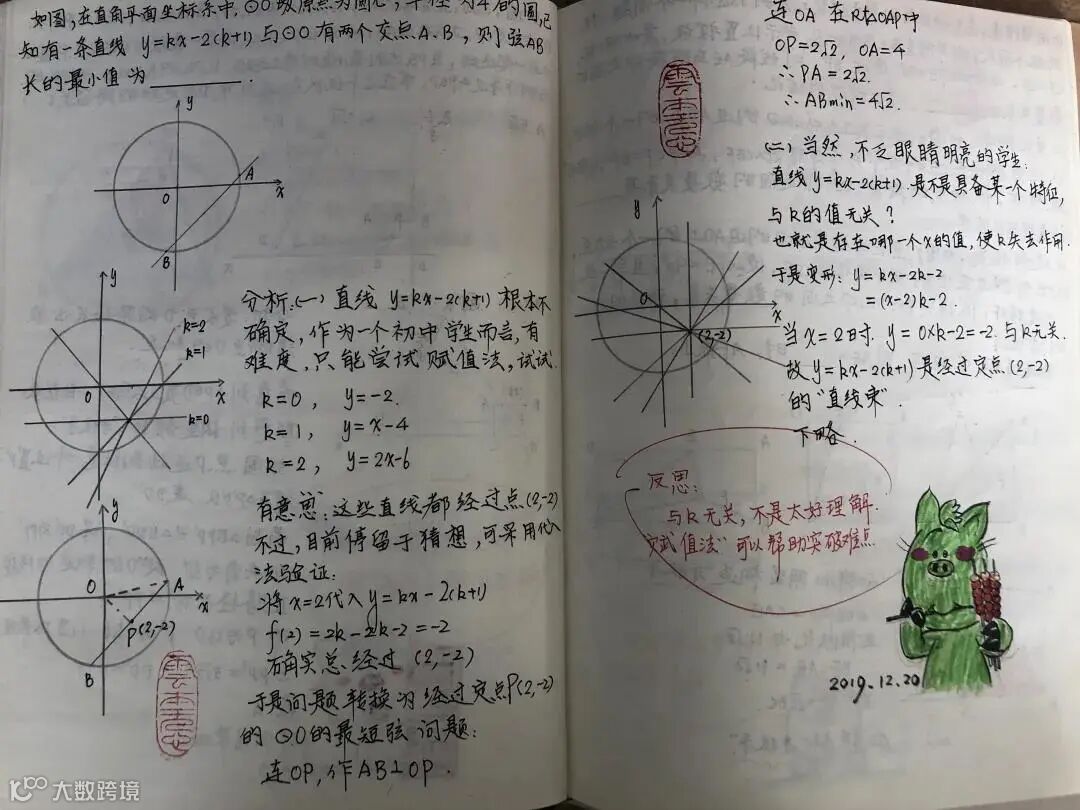 如图,在直角平面坐标系中,⊙O以原点为圆心,半径为4的圆,已
知有一条直线 y=kx-2(k+1)与⊙O有两个交点A.B,则弦AB
长的最小值为________.
y
A
O
x
B
y
k=2
k=1
O
x
k=0
分析:(一)直线 y=kx-2(k+1)根本不
确定,作为一个初中学生而言,有
难度,只能尝试赋值法,试试.
k=0, y=-2.
k=1, y=x-4
k=2, y=2x-6
有意思:这些直线都经过点(2,-2)
不过,目前停留于猜想,可采用代入
法验证:
将x=2代入y=kx-2(k+1)
f(2)=2k-2k-2=-2
确实总经过(2,-2)
于是问题转换为经过定点P(2,-2)
的⊙O的最短弦问题:
连OP,作AB⊥OP.
y
O
A
x
P(2,-2)
B
连OA 在Rt△OAP中
OP=2√2, OA=4
∴PA=2√2.
∴ABmin=4√2.
(二)当然,不乏眼睛明亮的学生.
直线y=kx-2(k+1).是不是具备某一个特征,
与k的值无关?
也就是存在哪一个x的值,使k失去作用.
于是变形: y=kx-2k-2
=(x-2)k-2.
当x=2时. y=0×k-2=-2.与k无关.
故y=kx-2(k+1)是经过定点(2,-2)
的"直线束".
下略.
y
O
x
(2,-2)
反思:
与k无关,不是太好理解.
"赋值法"可以帮助突破难点
2019.12.20
大数跨境